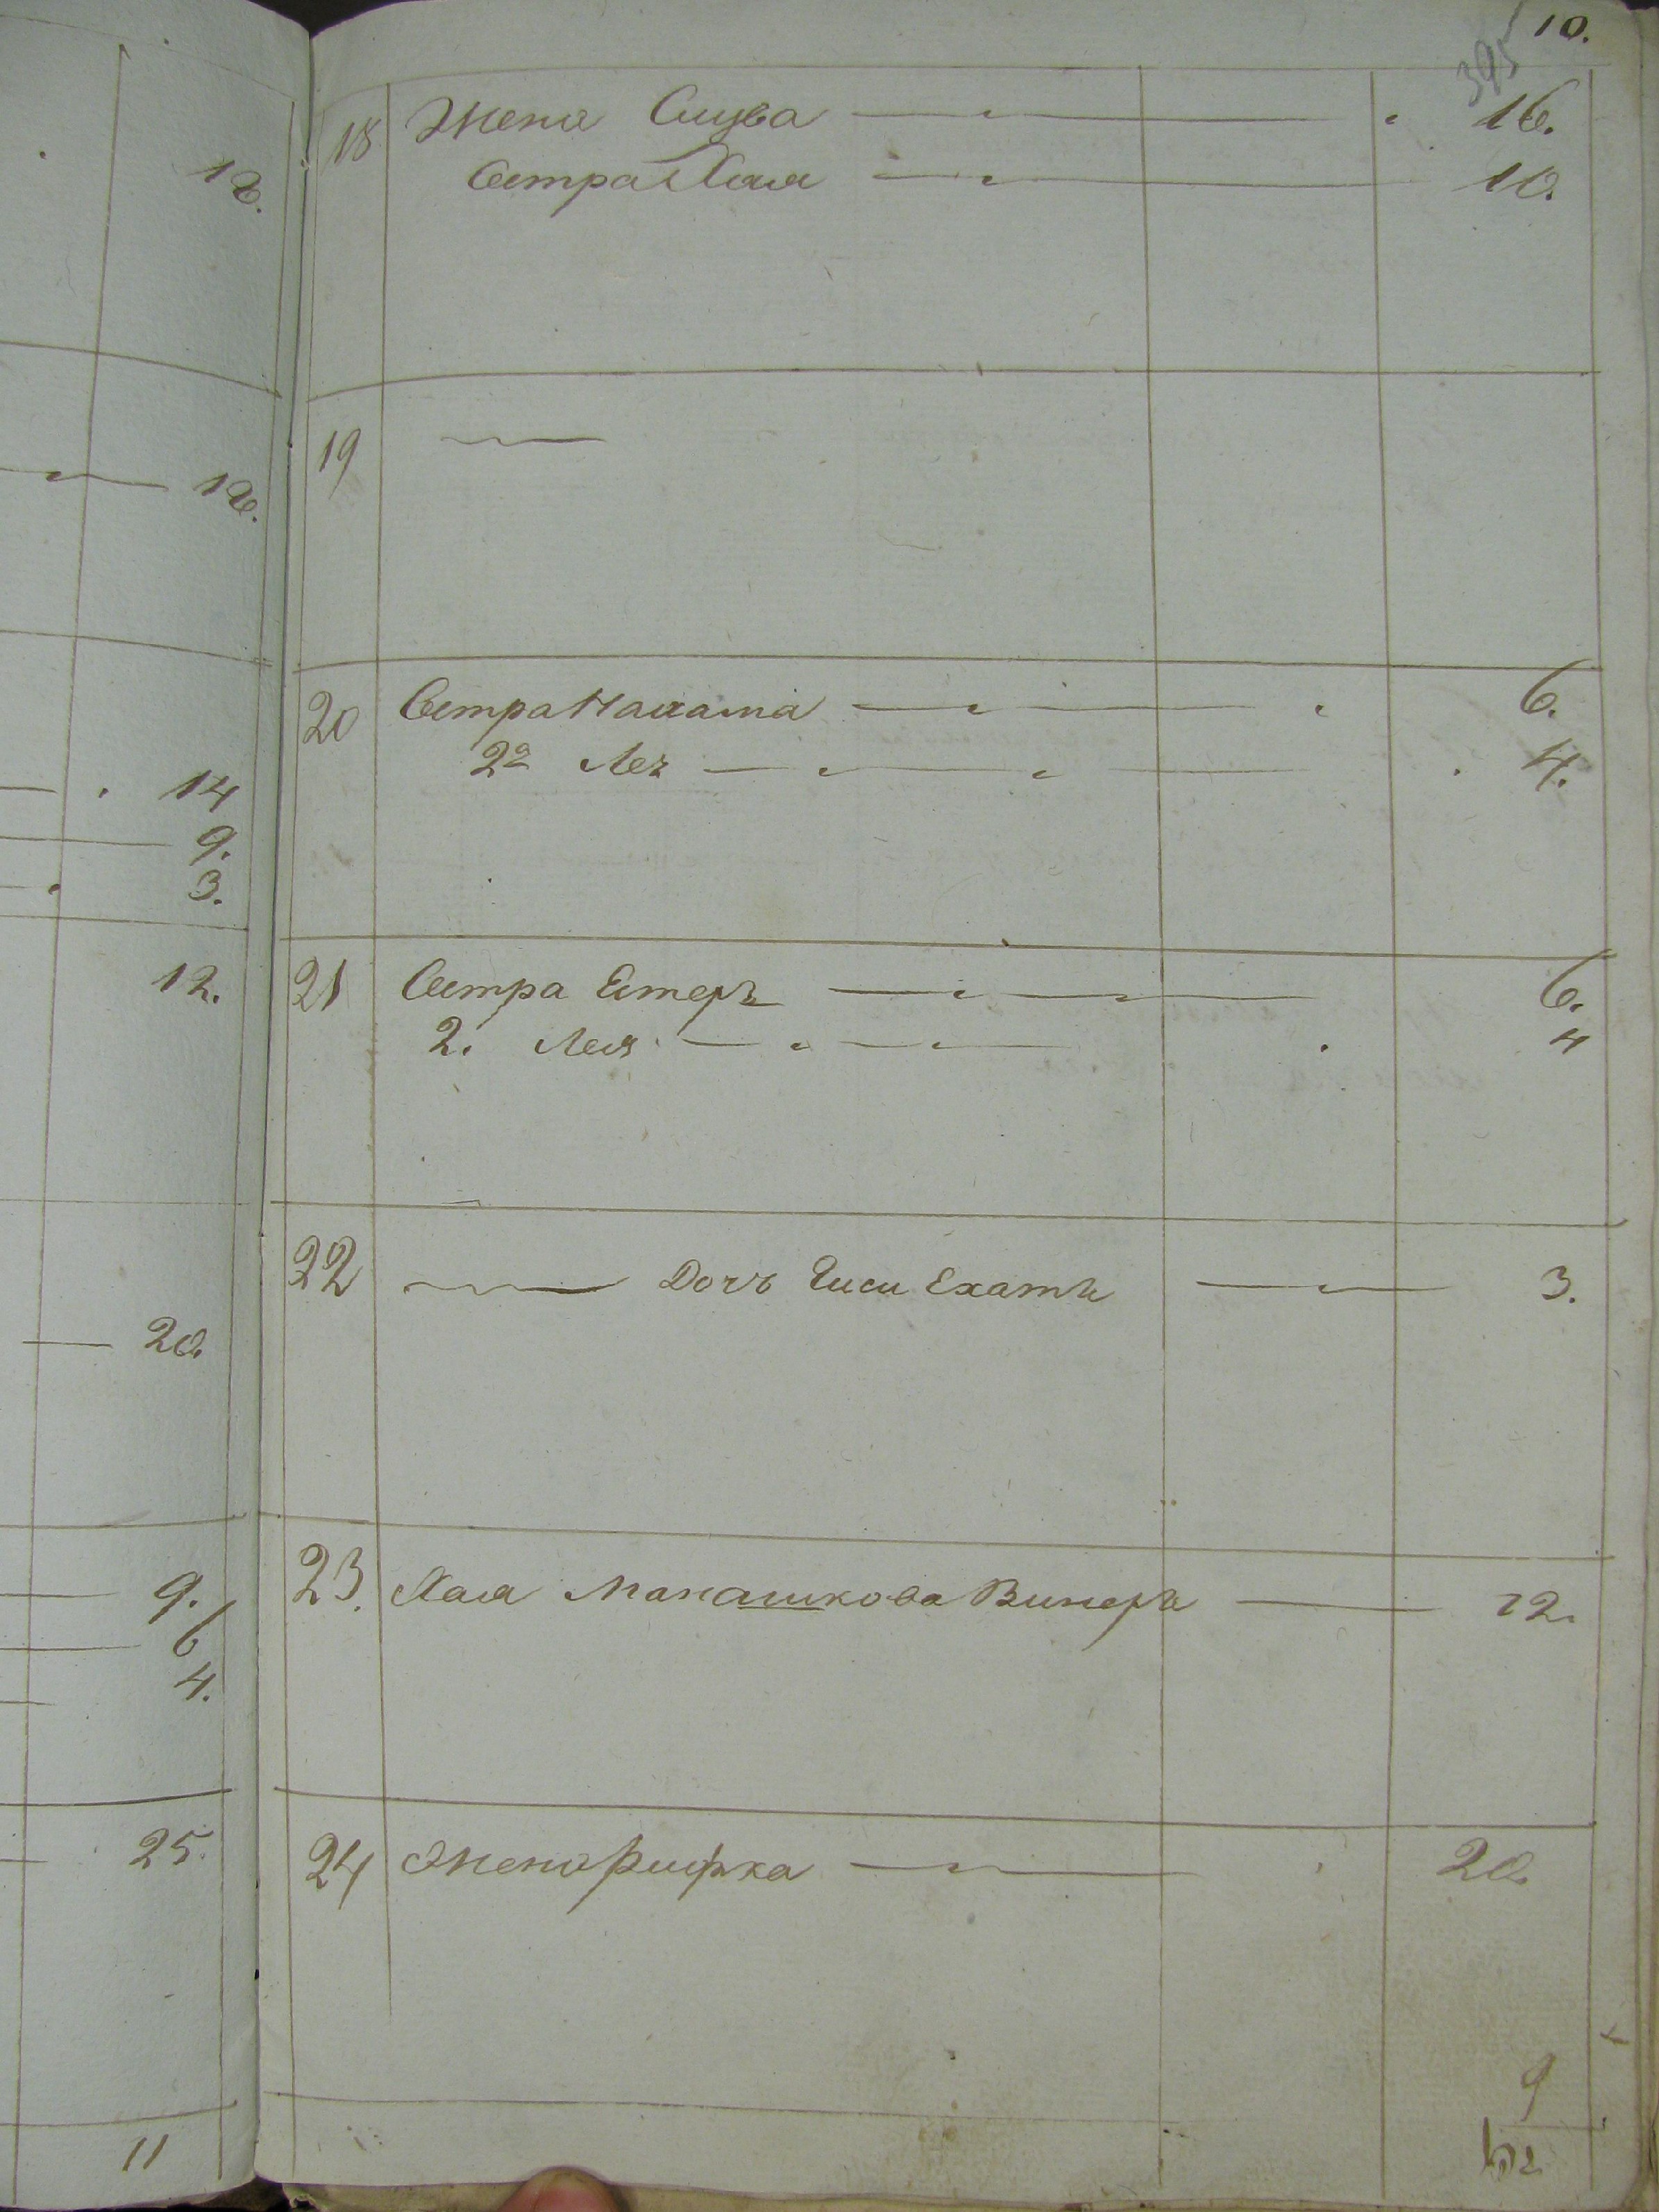 10.
395
18 Жена Слува 16.
Сестра Хая 10.
19
20 Сестра Нахама 6.
2я Лея 4.
21 Сестра Естеръ 6.
2. Лея 4
22 Дочь Гиси Ехатъ 3.
23. Хая Манашкова Винеръ 12.
24 Жена Рифка 20.
9
10.
10.
14
9.
3.
12.
20.
9.
6
4.
25.
11